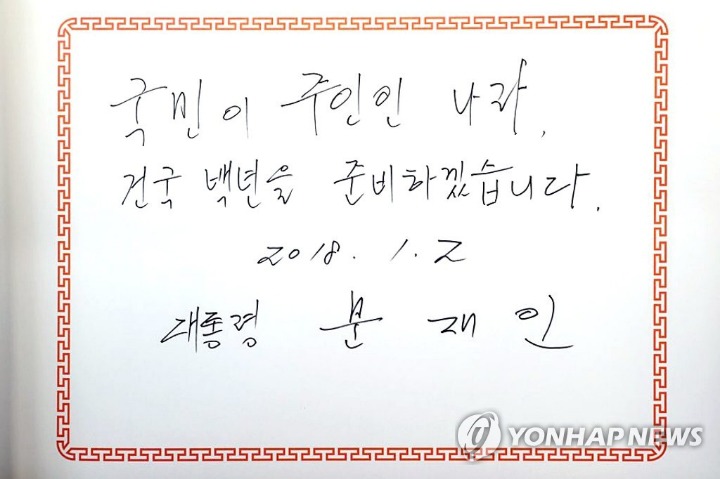 국민이 주인인 나라,
건국 백년을 준비하겠습니다.
2018. 1. 2
대통령 문 재 인
YONHAP NEWS